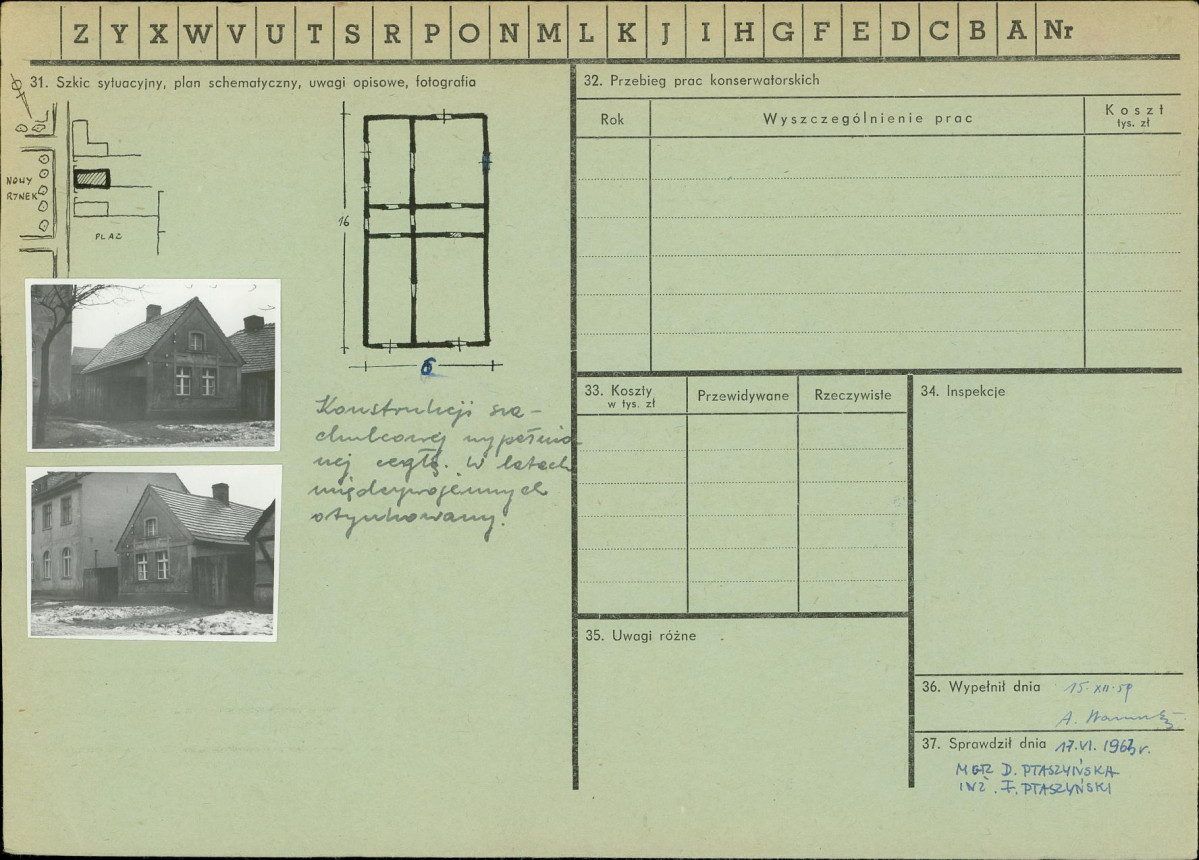 Z Y X W V U T S R P O N M L K J I H G F E D C B A Nr
31. Szkic sytuacyjny, plan schematyczny, uwagi opisowe, fotografia
NOWY
RYNEK
PLAC
16
6
Konstrukcji sza-
chulcowej wypełnio-
nej cegłą. W latach
międzywojennych
otynkowany.
32. Przebieg prac konserwatorskich
Rok
Wyszczególnienie prac
Koszt
tys. zł
33. Koszty
w tys. zł
Przewidywane
Rzeczywiste
34. Inspekcje
35. Uwagi różne
36. Wypełnił dnia 15.XII.59
A.
37. Sprawdził dnia 17.VI.1963r.
MGR D. PTASZYŃSKA
INŻ. F. PTASZYŃSKI